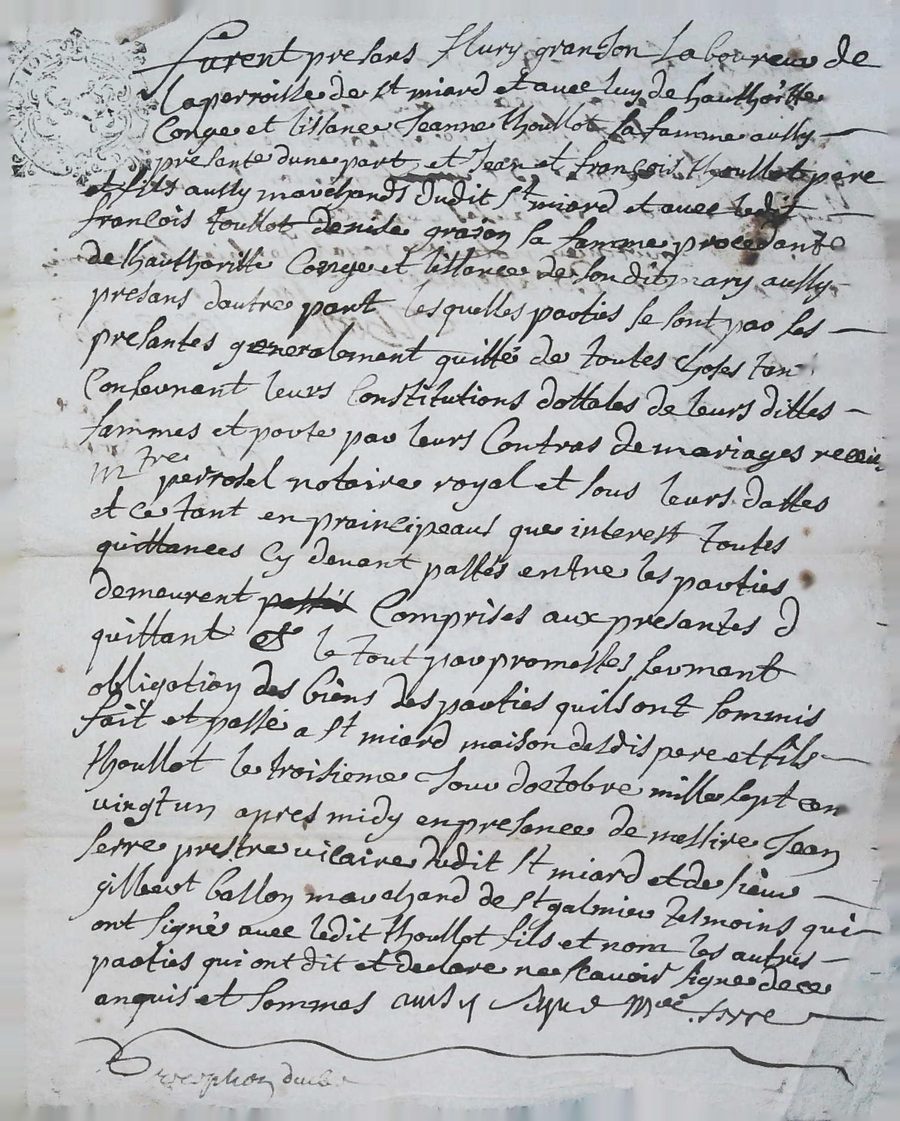 furent presans flury granjon laboureur de
laperroille de st miard et avec luy de hauthoritte
Conge et lissance Jeanne thoullot sa famme aussy
presante dune part et Jean et françois thoullot pere
et fils aussy marchands dudit st miard et avec ledit
françois toullot denise grason sa famme procedante
de lhauthoritte Conge et lissance de son dit mary aussy
presans dautre part lesquelles parties se sont par les
presantes generalement quitté de toutes choses tan
Consernant leurs Constitutions dottales de leurs dittes
fammes et porte par leurs Contras de mariages receu
mtre perrosel notaire royal et sous leurs dattes
et ce tant en praincipeaus que interest toutes
quittances Cy devant passés entre les parties
demeurent Comprises aux presantes d
quittant et le tout par promesses serment
obligation des biens des parties quils ont sommis
fait et passé a st miard maison desdis pere et fils
thoullot le troisieme Jour doctobre mille sept cen
vingt un apres midy en presance de messire Jean
serre prestre vicaire dudit st miard et de sieur
gilbert ballon marchand de st galmier tesmoins qui
ont signé avec ledit thoullot fils et nom les autres
parties qui ont dit et declare ne scavoir signe de ce
anquis et sommes
serre